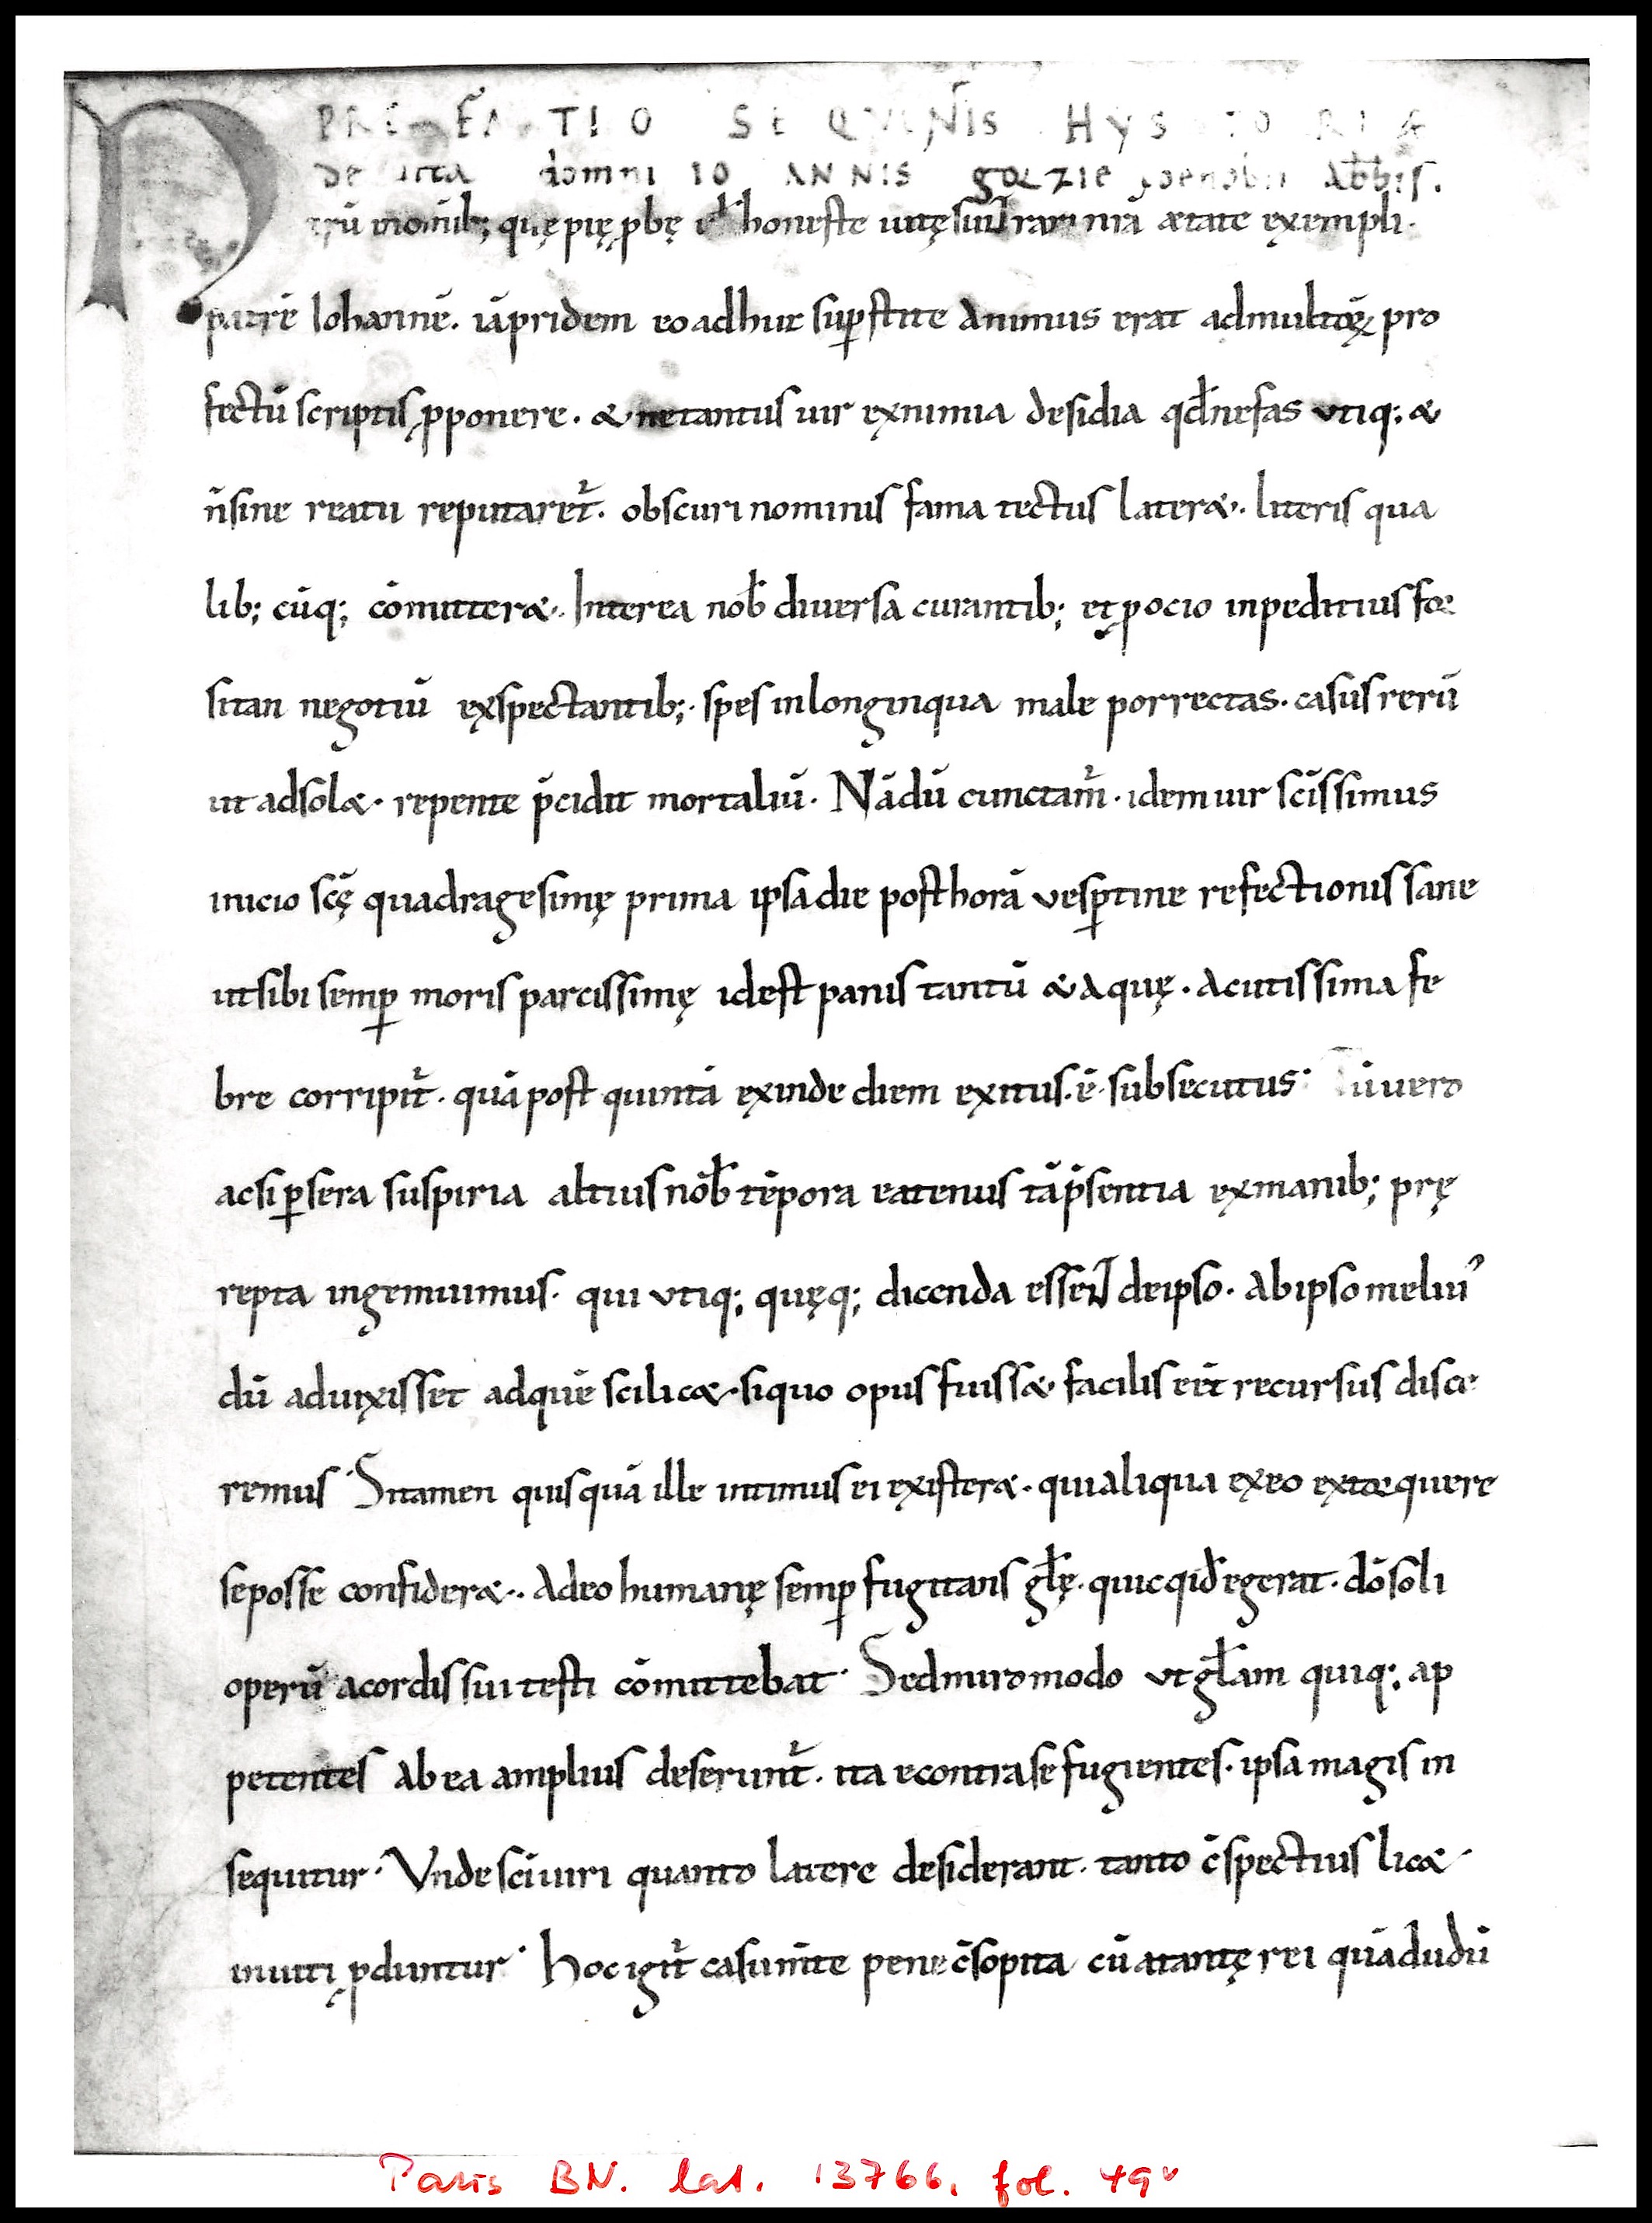 PREFATIO SEQUENTIS HYSTORIAE
de uita domni IOANNIS goRzie coenobii Abb̄is.
Nr̄ū moribꝫ quę pię ꝓbę id̄ honeste uitę sunt rari nr̄a ætate exempli·
patrē Iohannē. iāpridem eo adhuc suꝑstite animus erat ad multoꝝ pro
fectū scriptis ꝓponere. & ne tantus uir ex nimia desidia qd̄ nefas utiq; &
n̄ sine reatu reputaret᷑. obscuri nominis fama tectus later&. literis qua
lib; cūq; cōmitter&. Interea nob̄ diuersa curantib; et ꝓ ocio inpeditius for
sitan negotiū exspectantib;. spes in longinqua male porrectas. casus rerū
ut adsol&. repente p̄cidit mortaliū. Nā dū cunctam᷑. idem uir sc̄issimus
inicio sc̄ę quadragesimę prima ipsa die post horā uesꝑtine refectionis sane
ut sibi semꝑ moris parcissimę id est panis tantū & aquę. acutissima fe
bre corripit᷑. quā post quintā exinde diem exitus. ē. subsecutus. Tū uero
ac si ꝑ sera suspiria altius nob̄ tēpora eatenus tā p̄sentia ex manib; prę
repta ingemuimus. qui utiq; quęq; dicenda essent de ipso. ab ipso meliuꝰ
dū aduixisset ad quē scilic&. si quo opus fuiss& facilis er̄t recursus disce
remus. Si tamen quisquā ille intimus ei exister&. qui aliqua ex eo extorquere
se posse confider&. Adeo humanę semꝑ fugitans gl̄ę. quicqid egerat. dō soli
operū a cordis sui testi cōmittebat. Sed miro modo ut gl̄am quiq; ap
petentes ab ea amplius deserunt᷑. ita econtra se fugientes. ipsa magis in
sequitur. Vnde sc̄i uiri quanto latere desiderant. tanto c̄spectius lic&
inuiti ꝓduntur. Hoc igit᷑ casu m̄te pene c̄sopita cū a tantę rei quā dudū
Paris BN. lat. 13766, fol. 49v